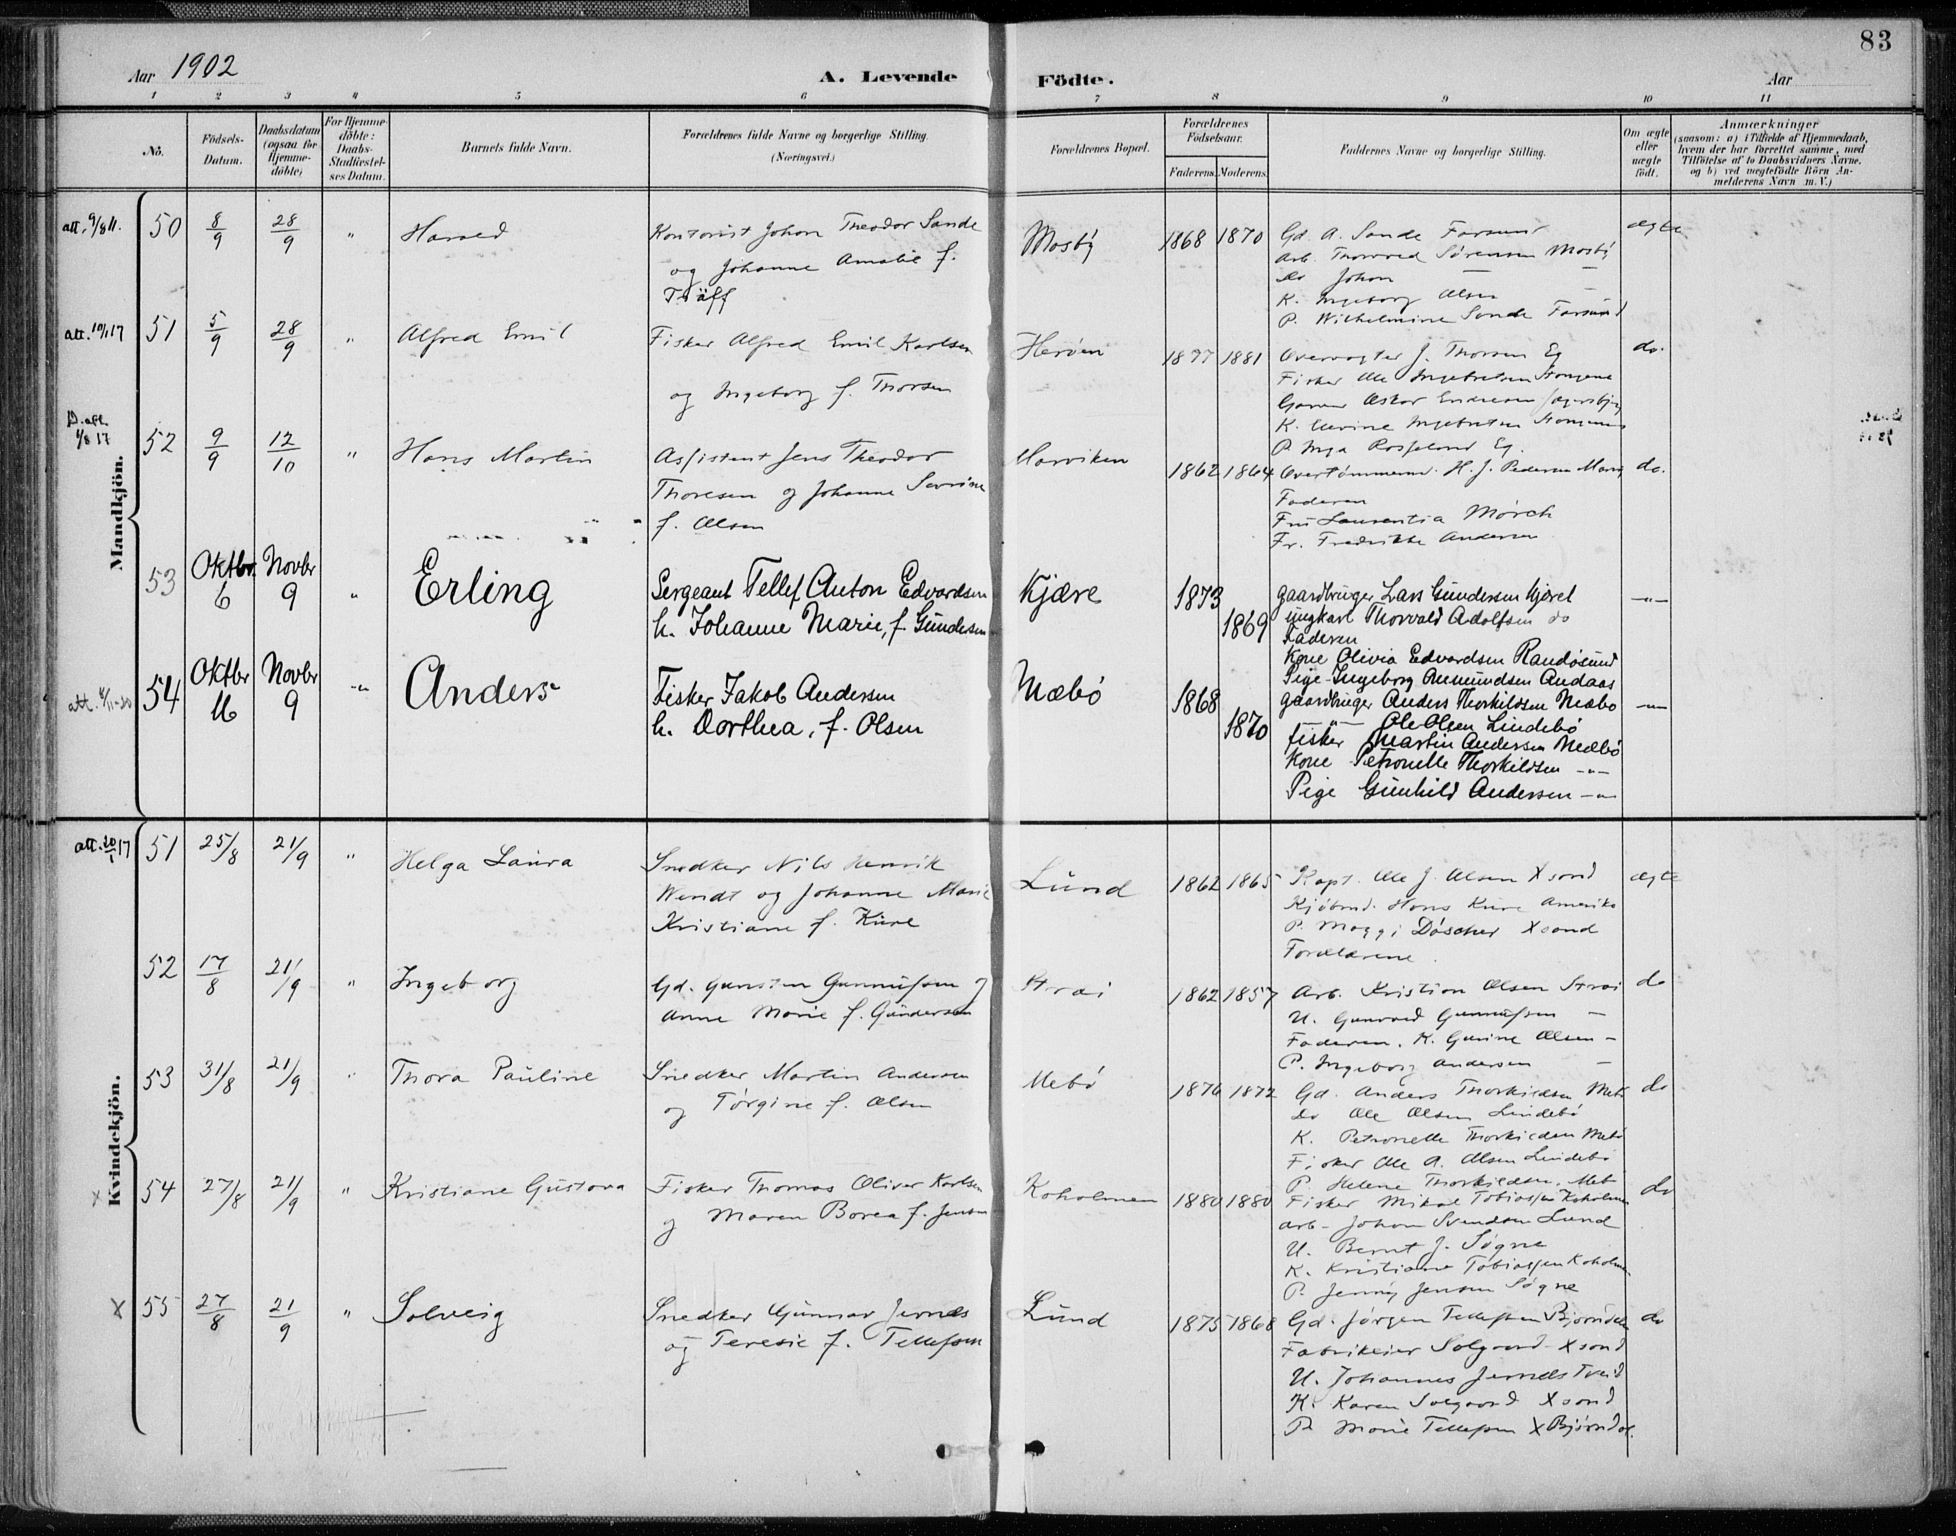 83
Aar 1902
A. Levende Födte.
Aar
1 2 3 4 5 6 7 8 9 10 11
No.
Födsels-Datum.
Daabsdatum (ogsaa for Hjemme-döbte)
For Hjemme-döbte: Daabs-Stadfæstel-ses Datum.
Barnets fulde Navn.
Forældrenes fulde Navne og borgerlige Stilling. (Næringsvei.)
Forældrenes Bopæl.
Forældrenes Födselsaar.
Faderens. Moderens.
Faddernes Navne og borgerlige Stilling.
Om ægte eller uægte födt.
Anmærkninger
(saasom: a) i Tilfælde af Hjemmedaab, hvem der har forrettet samme, med Tilföielse af to Daabsvidners Navne. og b) ved uægtefödte Börn An-melderens Navn m. V.)
Mandkjön.
att. 9/8 11. 50 8/9 28/9 " Harald
Kontorist Johan Theodor Sande
og Johanne Amalie f.
Träff
Mosby 1868 1870
Gd. A. Sande Farsund
Arb. Thorvald Sörensen Mosby
do Johan — —
K. Ingeborg Olsen —
P. Wilhelmine Sande Farsund
ægte
att. 10/1 17 51 5/9 28/9 " Alfred Emil
Fisker Alfred Emil Karlsen
og Ingeborg f. Thorsen
Herøen 1877 1881
Overvagter J. Thorsen Eg
Fisker Ole Ingebretsen
Oskar Endresen
K. Ingebretsen
P. Inga Rosseland Eg.
do.
D. att. 1/8 17 52 9/9 12/10 " Hans Martin
Assistent Jens Theodor
Thoresen og Johanne
f. Olsen
Marviken 1862 1864
H. J. Pedersen
Faderen
Fru Laurentia Mörch
Fr. Fredrikke Andersen
do.
53 Oktbr. 6 Novbr 9 " Erling
Sergeant Tellef Anton Edvardsen
h. Johanne Marie, f. Gundersen
Kjære 1873 1869
gaardbruger Lars Gundersen Kjæret
ungkarl Thorvald Adolfsen do
Faderen
Kone Olivia Edvardsen Randøsund
Pige Ingeborg Anmundsen Andaas
—"—
att. 54 Oktbr 16 Novbr 9 —"— Anders
Fisker Jakob Andersen
h. Dorthea, f. Olsen
Mæbø 1868 1870
gaardbruger Anders Thorkildsen Mæbø
—"— Ole Olsen Lindebø
fisker Martin Andersen Mæbø
Kone Petronelle Thorkildsen —"—
Pige Gunhild Andersen —"—
—"—
Kvindekjön.
att. 20/1 17 51 25/8 21/9 " Helga Laura
Snedker Nils Henrik
Wendt og Johanne Marie
Kristiane f. Kure
Lund 1862 1865
Kapt. Ole J. Olsen Xsand
Kjøbmd. Hans Kure Amerika
P. Maggi Døscher Xsand
Forældrene.
ægte
52 17/8 21/9 " Ingeborg
Gd. Gunsten Gunnufsen og
Anne Marie f. Gundersen
Strai 1862 1857
Arb. Kristian Olsen Strai
U. Gunvald Gunnufsen —
Faderen. K. Gurine Olsen —
P. Ingeborg Andersen —
do
53 31/8 21/9 " Thora Pauline
Snedker Martin Andersen
og Törgine f. Olsen
Mebø 1876 1872
Gd. Anders Thorkildsen Meb
do Ole Olsen Lindebø
K. Petronelle Thorkildsen Mebø
Fisker Ole A. Olsen Lindebø
P. Helene Thorkildsen. Meb
do
x 54 27/8 21/9 " Kristiane Gustava
Fisker Thomas Oliver Karlsen
og Maren Borea f. Jensen
Koholmen 1880 1880
Fisker Mikal Tobiassen Koholmen
Arb. Johan Svendsen Lund
U. Bernt J. Søgne
K. Kristiane Tobiassen Koholmen
P. Jenny Jensen Søgne
do
X 55 27/8 21/9 " Solveig
Snedker Gunnar Jernæs
og Teresie f. Tellefsen
Lund 1875 1868
Gd. Jørgen Tellefsen Bjørndalen
Fabrikeier Solgaard Xsand
U. Johannes Jernæs Tveid
K. Karen Solgaard Xsand
P. Marie Tellefsen X Bjørndal
do